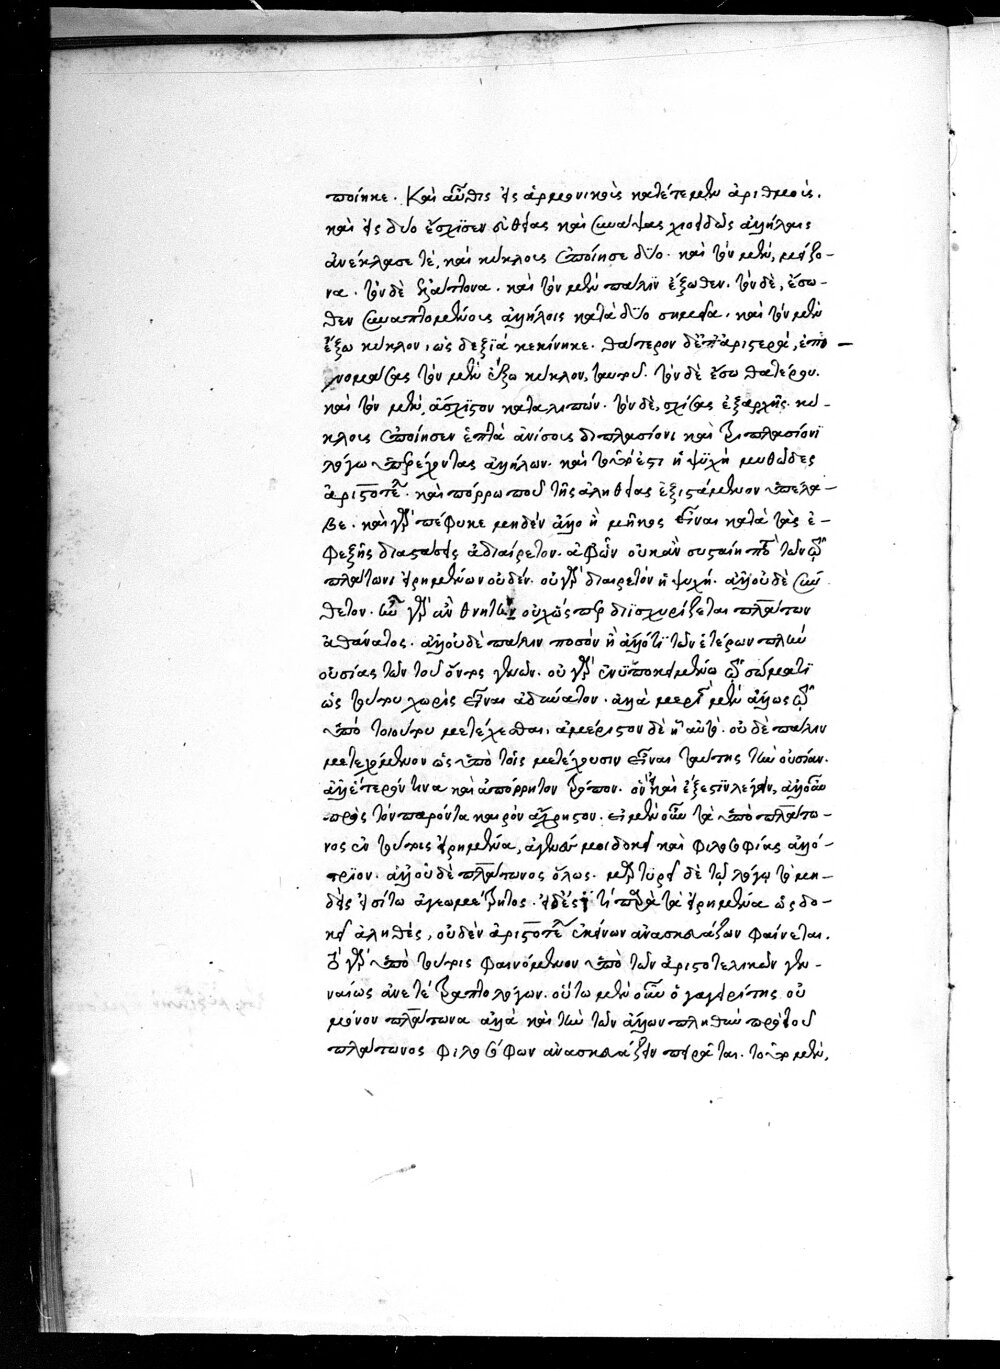 ποίηκε. Καὶ αὖθις εἰς ἁρμονικοὺς κατέτεμεν ἀριθμούς.
καὶ εἰς δύο ἔσχισεν εὐθείας καὶ συνάψας χιοειδῶς ἀλλήλαις
ἀνέκλασέ τε, καὶ κύκλους ἐποίησε δύο. καὶ τὸν μὲν, μείζο-
να. τὸν δὲ ἐλάττονα. καὶ τὸν μὲν πάλιν ἔξωθεν. τὸν δὲ, ἔσω-
θεν συναπτομένους ἀλλήλοις κατὰ δύο σημεῖα. καὶ τὸν μὲν
ἔξω κύκλον, ὡς δεξιὰ κεκίνηκε. θάτερον δὲ ἐπ' ἀριστερά, ἐπο-
νομάσας τὸν μὲν ἔξω κύκλον, ταυτοῦ. τὸν δὲ ἔσω θατέρου.
καὶ τὸν μὲν, ἄσχιστον καταλιπών. τὸν δὲ, σχίσας ἐξαρχῆς. κύ-
κλους ἐποίησεν ἑπτὰ ἀνίσους διπλασίονι καὶ τριπλασίονι
λόγῳ ὑπερέχοντας ἀλλήλων. καὶ τοῦτό ἐστι ἡ ψυχή μυθῶδες
ἀριστοτέλης. καὶ πόρρω που τῆς ἀληθείας ἐξιστάμενον ὑπέλα-
βε. καὶ γὰρ πέφυκε μηδὲν ἄλλο ἢ μῆκος εἶναι κατὰ τὰς ἐ-
φεξῆς διαστάσεις ἀδιαίρετον. ἀφ' ὧν οὐκ ἂν συσταίη ποτὲ τῶν τῷ
πλάτωνι εἰρημένων οὐδέν. οὐ γὰρ διαιρετὸν ἡ ψυχή. ἀλλ' οὐδὲ σύν
θετον. ἦν γὰρ ἂν θνητὸν οὐχ ὥς περ διισχυρίζεται πλάτων
ἀθάνατος. ἀλλ' οὐδὲ πάλιν ποσὸν ἢ ἄλλό τι τῶν ἑτέρων πλὴν
οὐσίας τῶν τοῦ ὄντος γενῶν. οὐ γὰρ ἐν ὑποκειμένῳ τῷ σώματι
ὡς τούτου χωρὶς εἶναι ἀδύνατον. ἀλλὰ μερὶς μὲν ἄλλως τῷ
ὑπὸ τοιούτου μετέχεσθαι, ἀμέριστον δὲ ᾗ αὐτό. οὐδὲ πάλιν
μετεχόμενον ὡς ὑπὸ τοῖς μετέχουσιν εἶναι ταύτης τὴν οὐσίαν.
ἀλλ' ἕτερόν τινα καὶ ἀπόρρητον τρόπον. ὃν καὶ ἔξεστι λέγειν, ἀλλ' οὖν
πρὸς τὸν παρόντα καιρὸν ἄχρηστον. εἰ μὲν οὖν τὰ ὑπὸ πλάτω-
νος ἐν τούτοις εἰρημένα, ἀγεννῆ μοι δοκεῖ καὶ φιλοσοφίας ἀλλό-
τριον. ἀλλ' οὐδὲ πλάτωνος ὅλως. μετὰ τοῦ δὲ τῷ λόγῳ τὸ μη-
δεὶς εἰσίτω ἀγεωμέτρητος. εἰ δέ ἐστί τι παρὰ τὰ εἰρημένα ὡς δο-
κεῖ ἀληθὲς, οὐδὲν ἀριστοτέλης ἐκείνων ἀνασκευάζων φαίνεται.
ὃ γὰρ ὑπὸ τούτοις φαινόμενον ὑπὸ τῶν ἀριστοτελικῶν γεν-
ναίως ἀνετέτραπτο λόγων. οὕτω μὲν οὖν ὁ γαγειρίτης οὐ
μόνον πλάτωνα ἀλλὰ καὶ τὴν τῶν ἄλλων πληθὺν πρὸ τοῦ
πλάτωνος φιλοσόφων ἀνασκευάζειν πειρᾶται. τοῦτο μὲν,